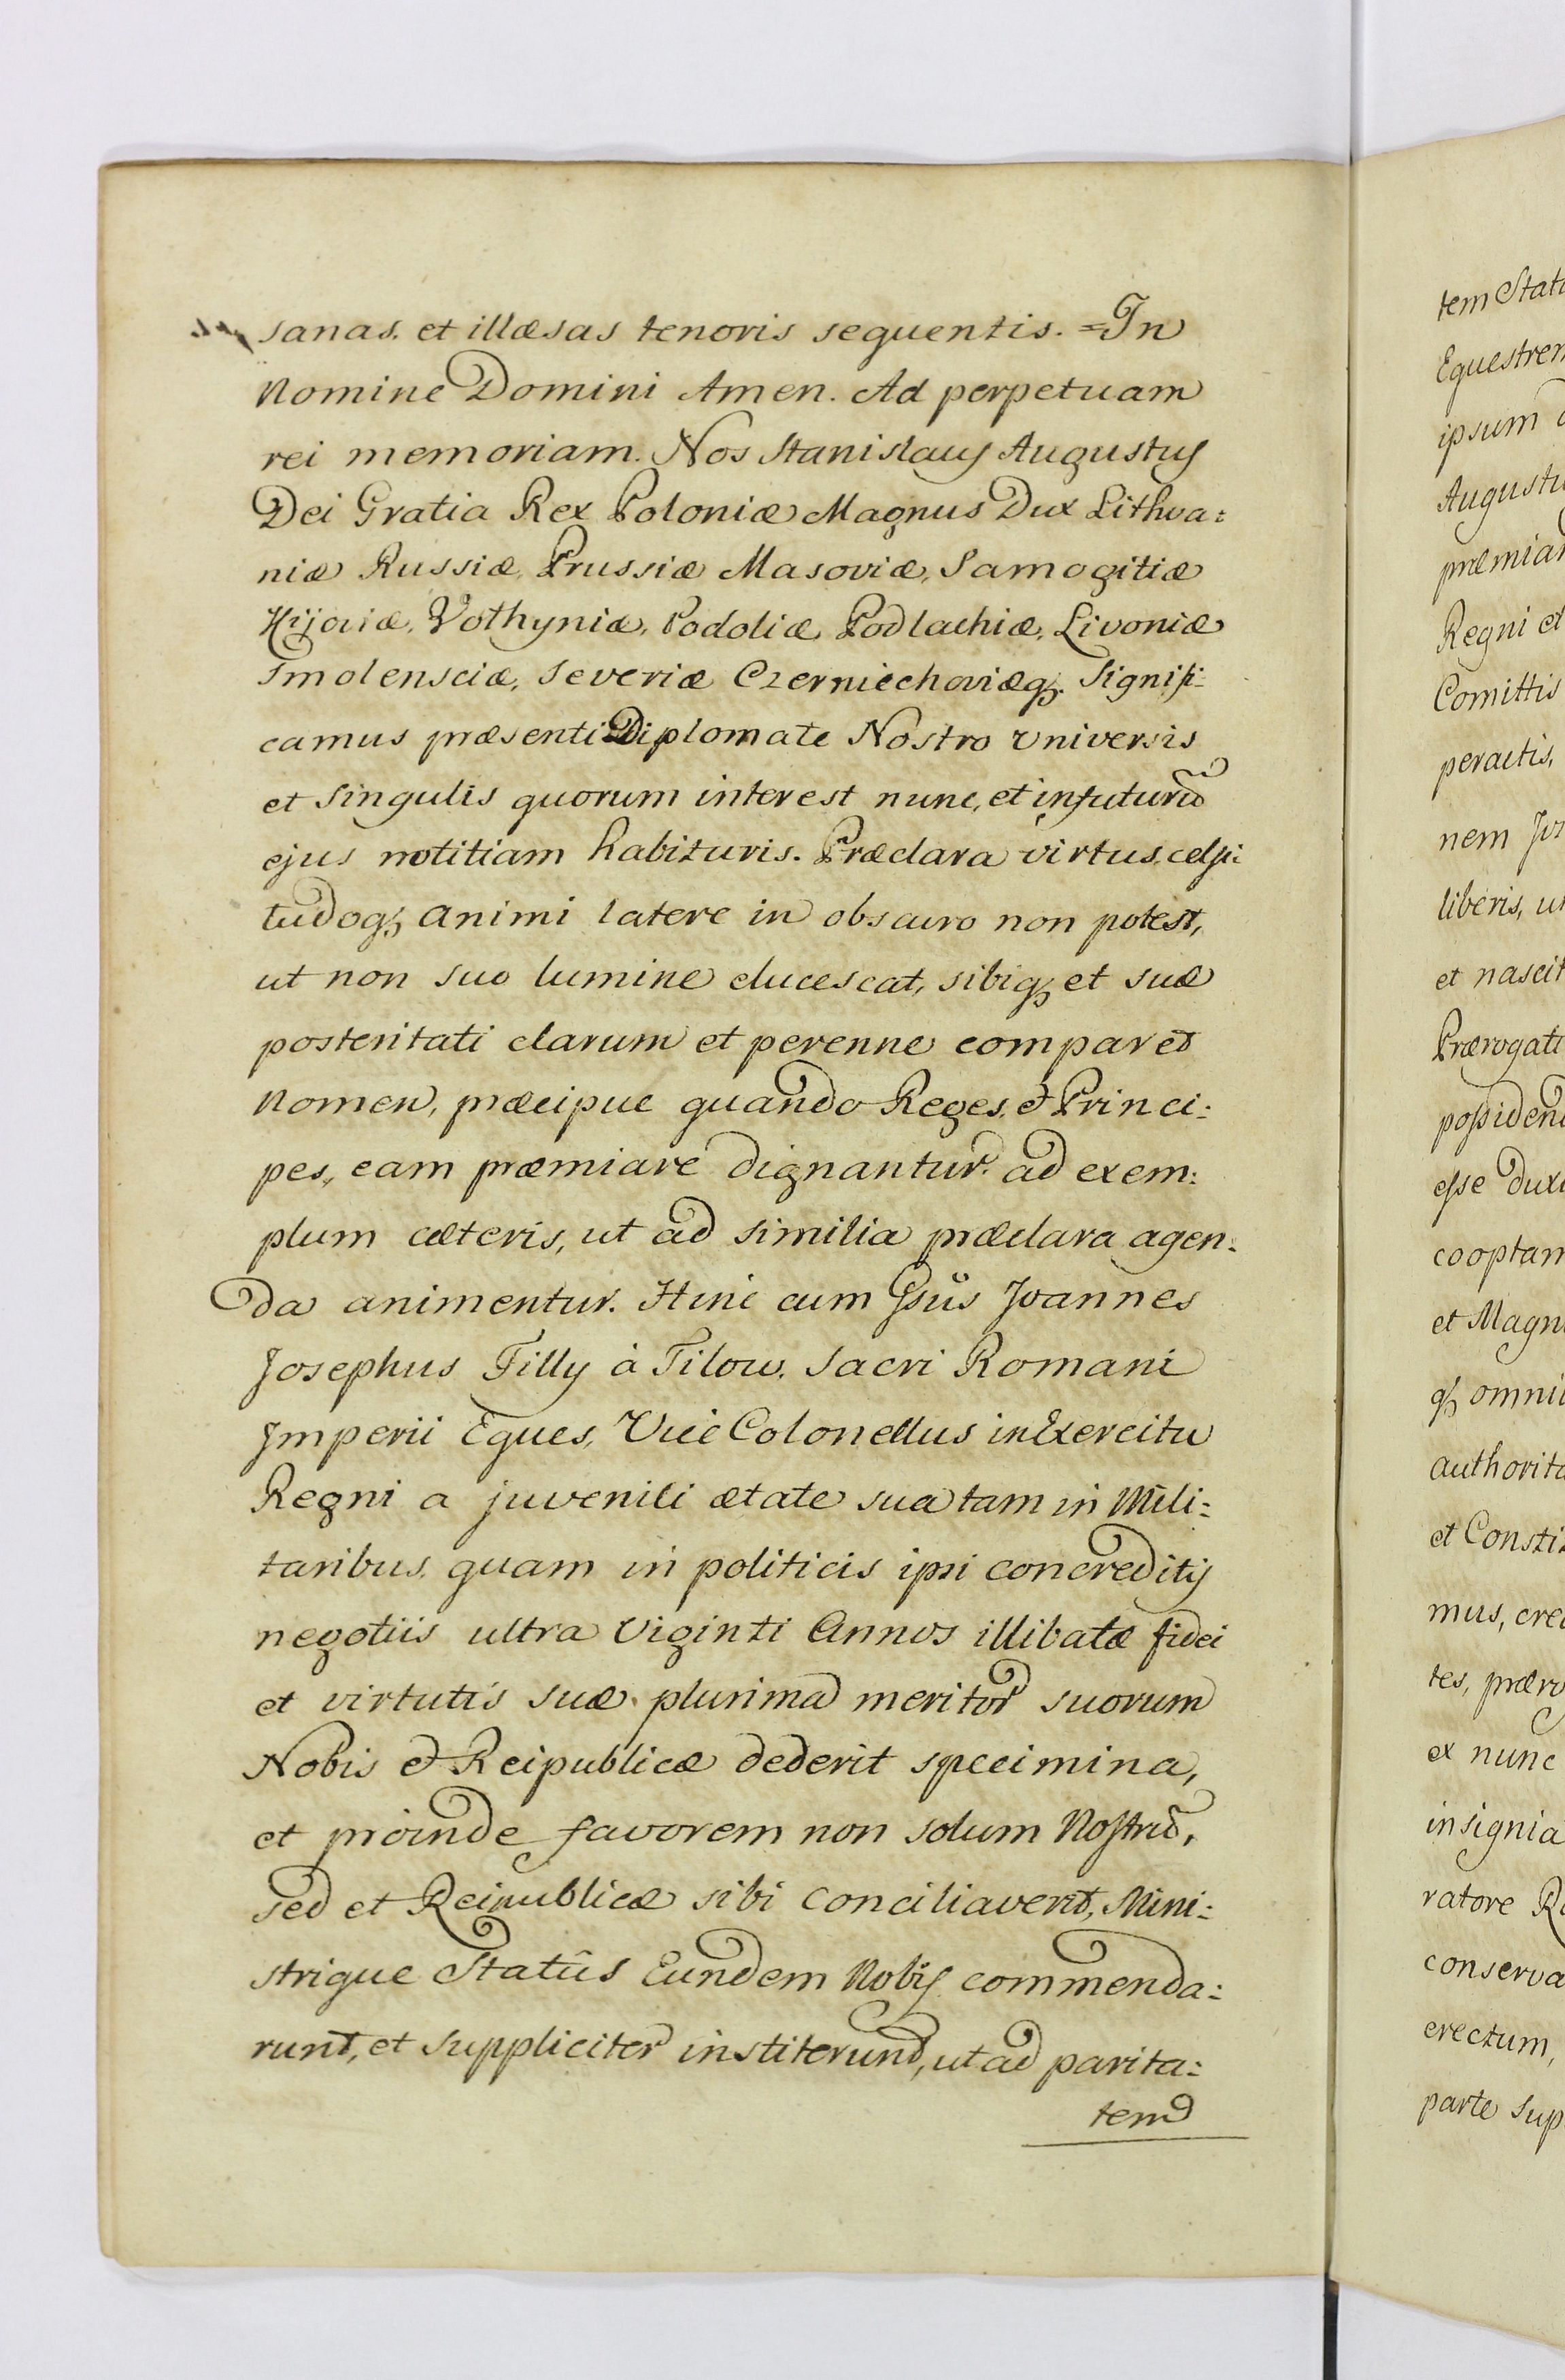 sanas. et illæsas tenoris sequentis. = In
Nomine Domini Amen. Ad perpetuam
rei memoriam. Nos Stanislaus Augustus
Dei Gratia Rex Poloniæ Magnus Dux Lithva:
niæ Russiæ, Prussiæ Masoviæ, Samogitiæ
Kijoviæ, Volhyniæ, Podoliæ Podlachiæ, Livoniæ
Smolensciæ, Severiæ Czerniechoviæq3. Signifi:
camus præsenti Diplomate Nostro Universis
et Singulis quorum interest nunc, et infuturū
ejus notitiam habituris. Præclara virtus, celsi:
tudoq3 animi latere in obscuro non potest,
ut non suo lumine elucescat, sibiq3 et suæ
posteritati clarum et perenne comparet
Nomen, præcipue quando Reges, et Princi:
pes, eam præmiare dignantur. ad exem:
plum cæteris, ut ad similia præclara agen:
da animentur. Hinc cum Gsus Joannes
Josephus Tilly à Tilow. Sacri Romani
Imperii Eques, Vice Colonellus in Exercitu
Regni a juvenili ætate sua tam in Mili:
taribus, quam in politicis ipsi concreditis
negotiis ultra Viginti Annos illibatæ fidei
et virtutis suæ plurima meritor suorum
Nobis et Reipublicæ dederit specimina,
et proinde favorem non solum Nostrū,
sed et Reipublicæ sibi conciliaverit, Mini:
strique Statûs Eundem Nobis commenda:
runt, et suppliciter institerunt, ut ad parita:
tem
tem Stat
Equestrem
ipsum
August
præmia
Regni et
Comittis
peractis,
nem Jo
liberis, u
et nascit
Prærogati
possiden
esse dux
cooptam
et Magn
q3 omni
authorita
et Consti
mus, cre
tes, præro
ex nunc
insignia
ratore R
conserva
erectum,
parte sup